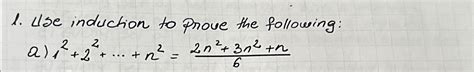 1. Use induction to prove the following:
a) 1² + 2² + ··· + n² = (2n² + 3n² + n)/6